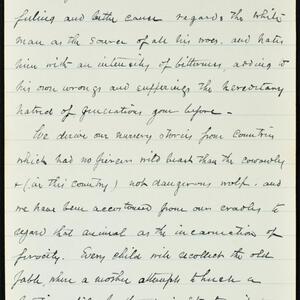 filling and bitter cause regards the white
man as the source of all his woes, and hates
him with an intensity of bitterness, adding to
his own wrongs and sufferings the hereditary
hatred of generations gone before -
We derive our nursery stories from countries
which had no fiercer wild beast than the cowardly
& (in this country) not dangerous wolf, and
we have been accustomed from our cradles to
regard that animal as the incarnation of
ferocity. Every child will recollect the old
fable, where a mother attempts to hush a